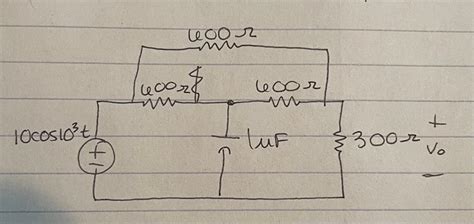 400Ω
400Ω 400Ω
10cos10³t 1uF 300Ω +
Vo
−